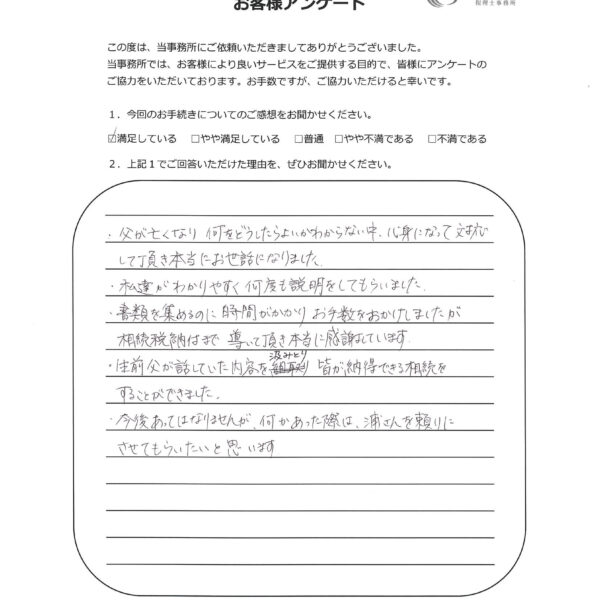 お客様アンケート
税理士事務所
この度は、当事務所にご依頼いただきましてありがとうございました。
当事務所では、お客様により良いサービスをご提供する目的で、皆様にアンケートの
ご協力をいただいております。お手数ですが、ご協力いただけると幸いです。
１．今回のお手続きについてのご感想をお聞かせください。
☑満足している □やや満足している □普通 □やや不満である □不満である
２．上記１でご回答いただけた理由を、ぜひお聞かせください。
・父が亡くなり 何をどうしたらよいかわからない中、心身になって対応
して頂き本当にお世話になりました。
・私達がわかりやすく何度も説明をしてもらいました。
・書類を集めるのに時間がかかり お手数をおかけしましたが
相続税納付まで 導いて頂き本当に感謝しています。
・生前父が話していた内容を汲みとり 皆が納得できる相続を
することができました。
・今後あってはなりませんが、何かあった際は、浦さんを頼りに
させてもらいたいと思います